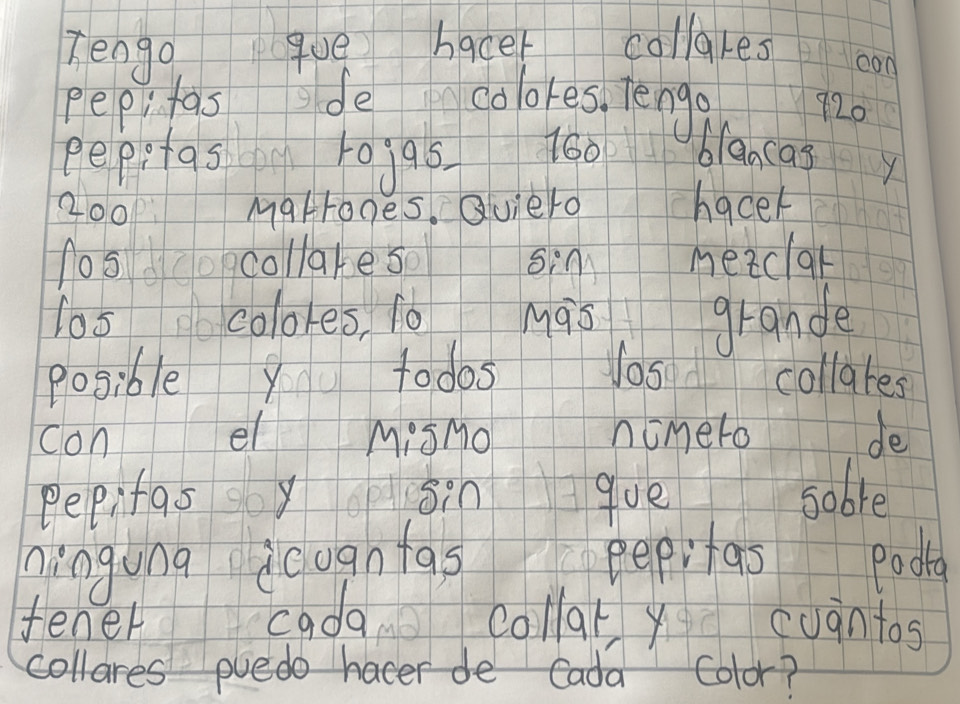 Tengo que hacer collares con
pepitas de colores. Tengo 120
pepitas rojas 160 blancas y
200 marrones. Quiero hacer
los collares sin mezclar
los colores, lo más grande
posible y todos los collares
con el mismo número de
pepitas y sin que sobre
ninguna ¿cuantas pepitas podra
tener cada collar, y cuántos
collares puedo hacer de cada color?